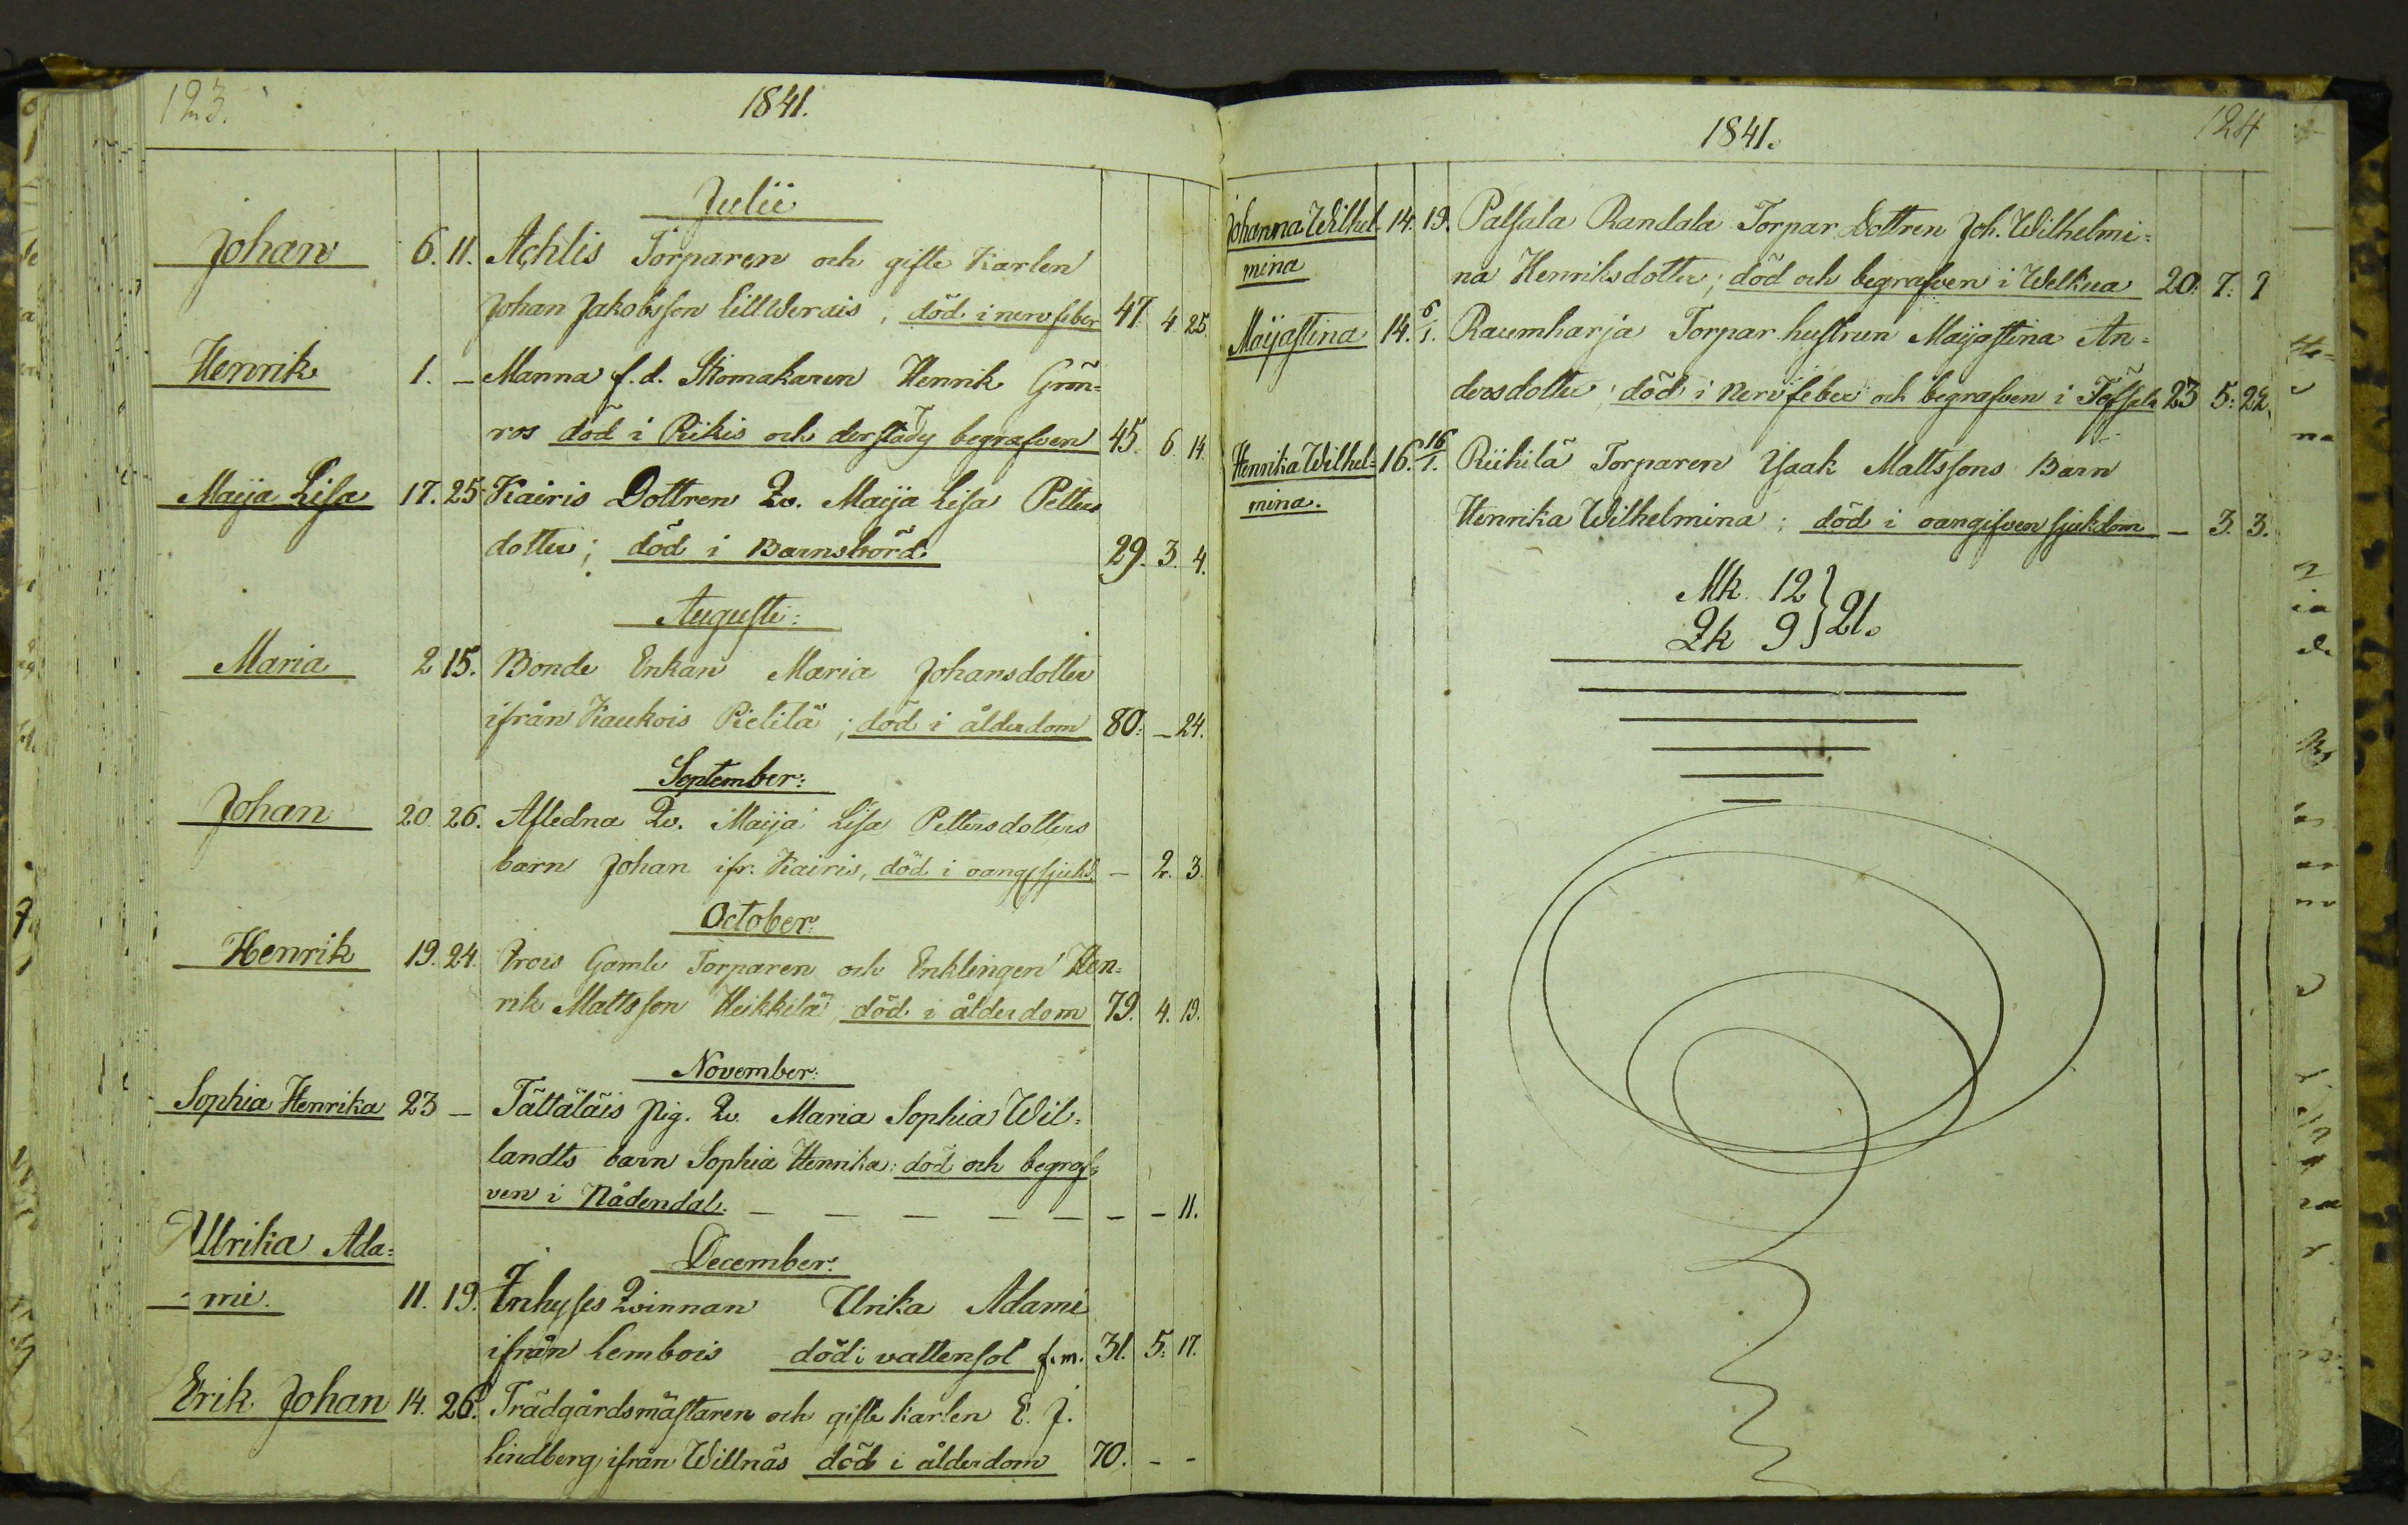 123.
1841.
Julii
Johan 6. 11. Achlis Torparen och gifte Karlen
Johan Jakobsson Lillwerais, död i nervfeber 47. 4 25.
Henrik 1. – Manna f. d. Skomakaren Henrik Grön=
ros död i Rikis och derstädz begrafven 45. 6. 14.
Maija Lisa 17. 25 Kairis Dottren Qv. Maija Lisa Petters
dotter; död i Barnsbörd. 29. 3. 4.
Augusti:
Maria 2 15. Bonde Enkan Maria Johansdotter
ifrån Kaukois Pietilä; död i ålderdom 80: – 24.
September:
Johan 20. 26. Afledna Qv. Maija Lisa Pettersdotters
barn Johan ifr. Kairis, död i oang. sjukd. – 2. 3.
October:
Henrik 19. 24. Arois Gamle Torparen och Enklingen Hen=
rik Mattsson Heikkilä död i ålderdom 79. 4. 19.
November:
Sophia Henrika 23 – Tättäläis Pig. Qv. Maria Sophia Wil=
landts barn Sophia Henrika: död och begraf=
ven i Nådendal. – – – – – – – 11.
Ulrika Ada=
December:
mi. 11. 19. Inhyses Qvinnan Ulrika Adami
ifrån Lembois död i vattensot f.m. 31. 5. 17.
Erik Johan 14. 26. Trädgårdsmästaren och gifte karlen E. J.
Lindberg ifrån Willnäs död i ålderdom 70. – –
124
1841.
Johanna Wilhel= 14. 19. Palsala Randala Torpar Dottren Joh. Wilhelmi=
mina na Henriksdotter; död och begrafven i Welkua 20: 7: 7
Maijastina 14. 6/1. Raumharja Torpar hustrun Maijastina An=
dersdotter; död i Nervfeber och begrafven i Töfsala 23 5: 22.
Henrika Wilhel= 16. 16/1. Riikilä Torparen Isaak Mattssons Barn
mina. Henrika Wilhelmina; död i oangifven sjukdom – 3. 3.
Mk 12 } 21.
Qk 9